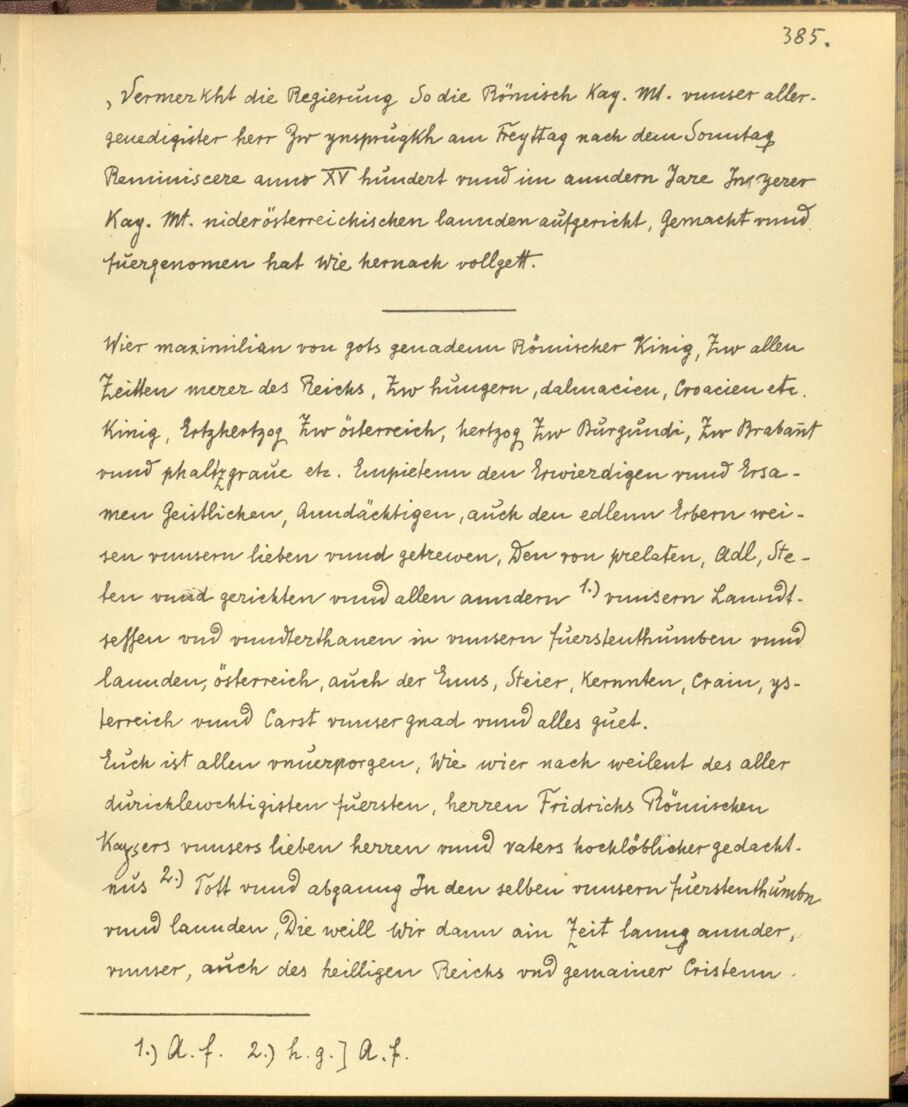 385.
„Vermerkht die Regierung So die Römisch Kay. Mt. vnnser aller-
genedigister herr Zw ynsprugkh am Freyttag nach dem Sonntag
Reminiscere anno XV hundert vnnd im anndern Jare In yerer
Kay. Mt. niderösterreichischen lannden aufgericht, Gemacht vnnd
fuergenomen hat wie hernach vollgett.
Wier maximilian von gots genadenn Römischer Kinig, Zw allen
Zeitten merer des Reichs, Zw hungern, dalmacien, Croacien etc.
Kinig, Ertzhertzog Zw österreich, hertzog Zw Burgundi, Zw Brabant
vnnd phaltzgraue etc. Empietenn den Erwierdigen vnnd Ersa-
men Geistlichen, Anndächtigen, auch den edlenn Erbern wei-
sen vnnsern lieben vnnd getrewen, Den von prelaten, Adl, Ste-
ten vnnd gerichten vnnd allen anndern 1.) vnnsern Lanndt-
sessen vnd vnndterthanen in vnnsern fuerstenthumben vnnd
lannden, österreich, auch der Enns, Steier, Kernnten, Crain, ys-
terreich vnnd Carst vnnser gnad vnnd alles guet.
Euch ist allen vnuerporgen, Wie wier nach weilent des aller
durichlewchtigisten fuersten, herren Fridrichs Römischen
Kaysers vnnsers lieben herren vnnd vaters hochlöblicher gedacht-
nus 2.) Tott vnnd abganng In den selben vnnsern fuerstenthumbn
vnnd lannden, Die weill wir dann ain Zeit lanng annder,
vnnser, auch des heilligen Reichs vnd gemainer Cristenn
1.) A. f. 2.) h. g. ] A. f.